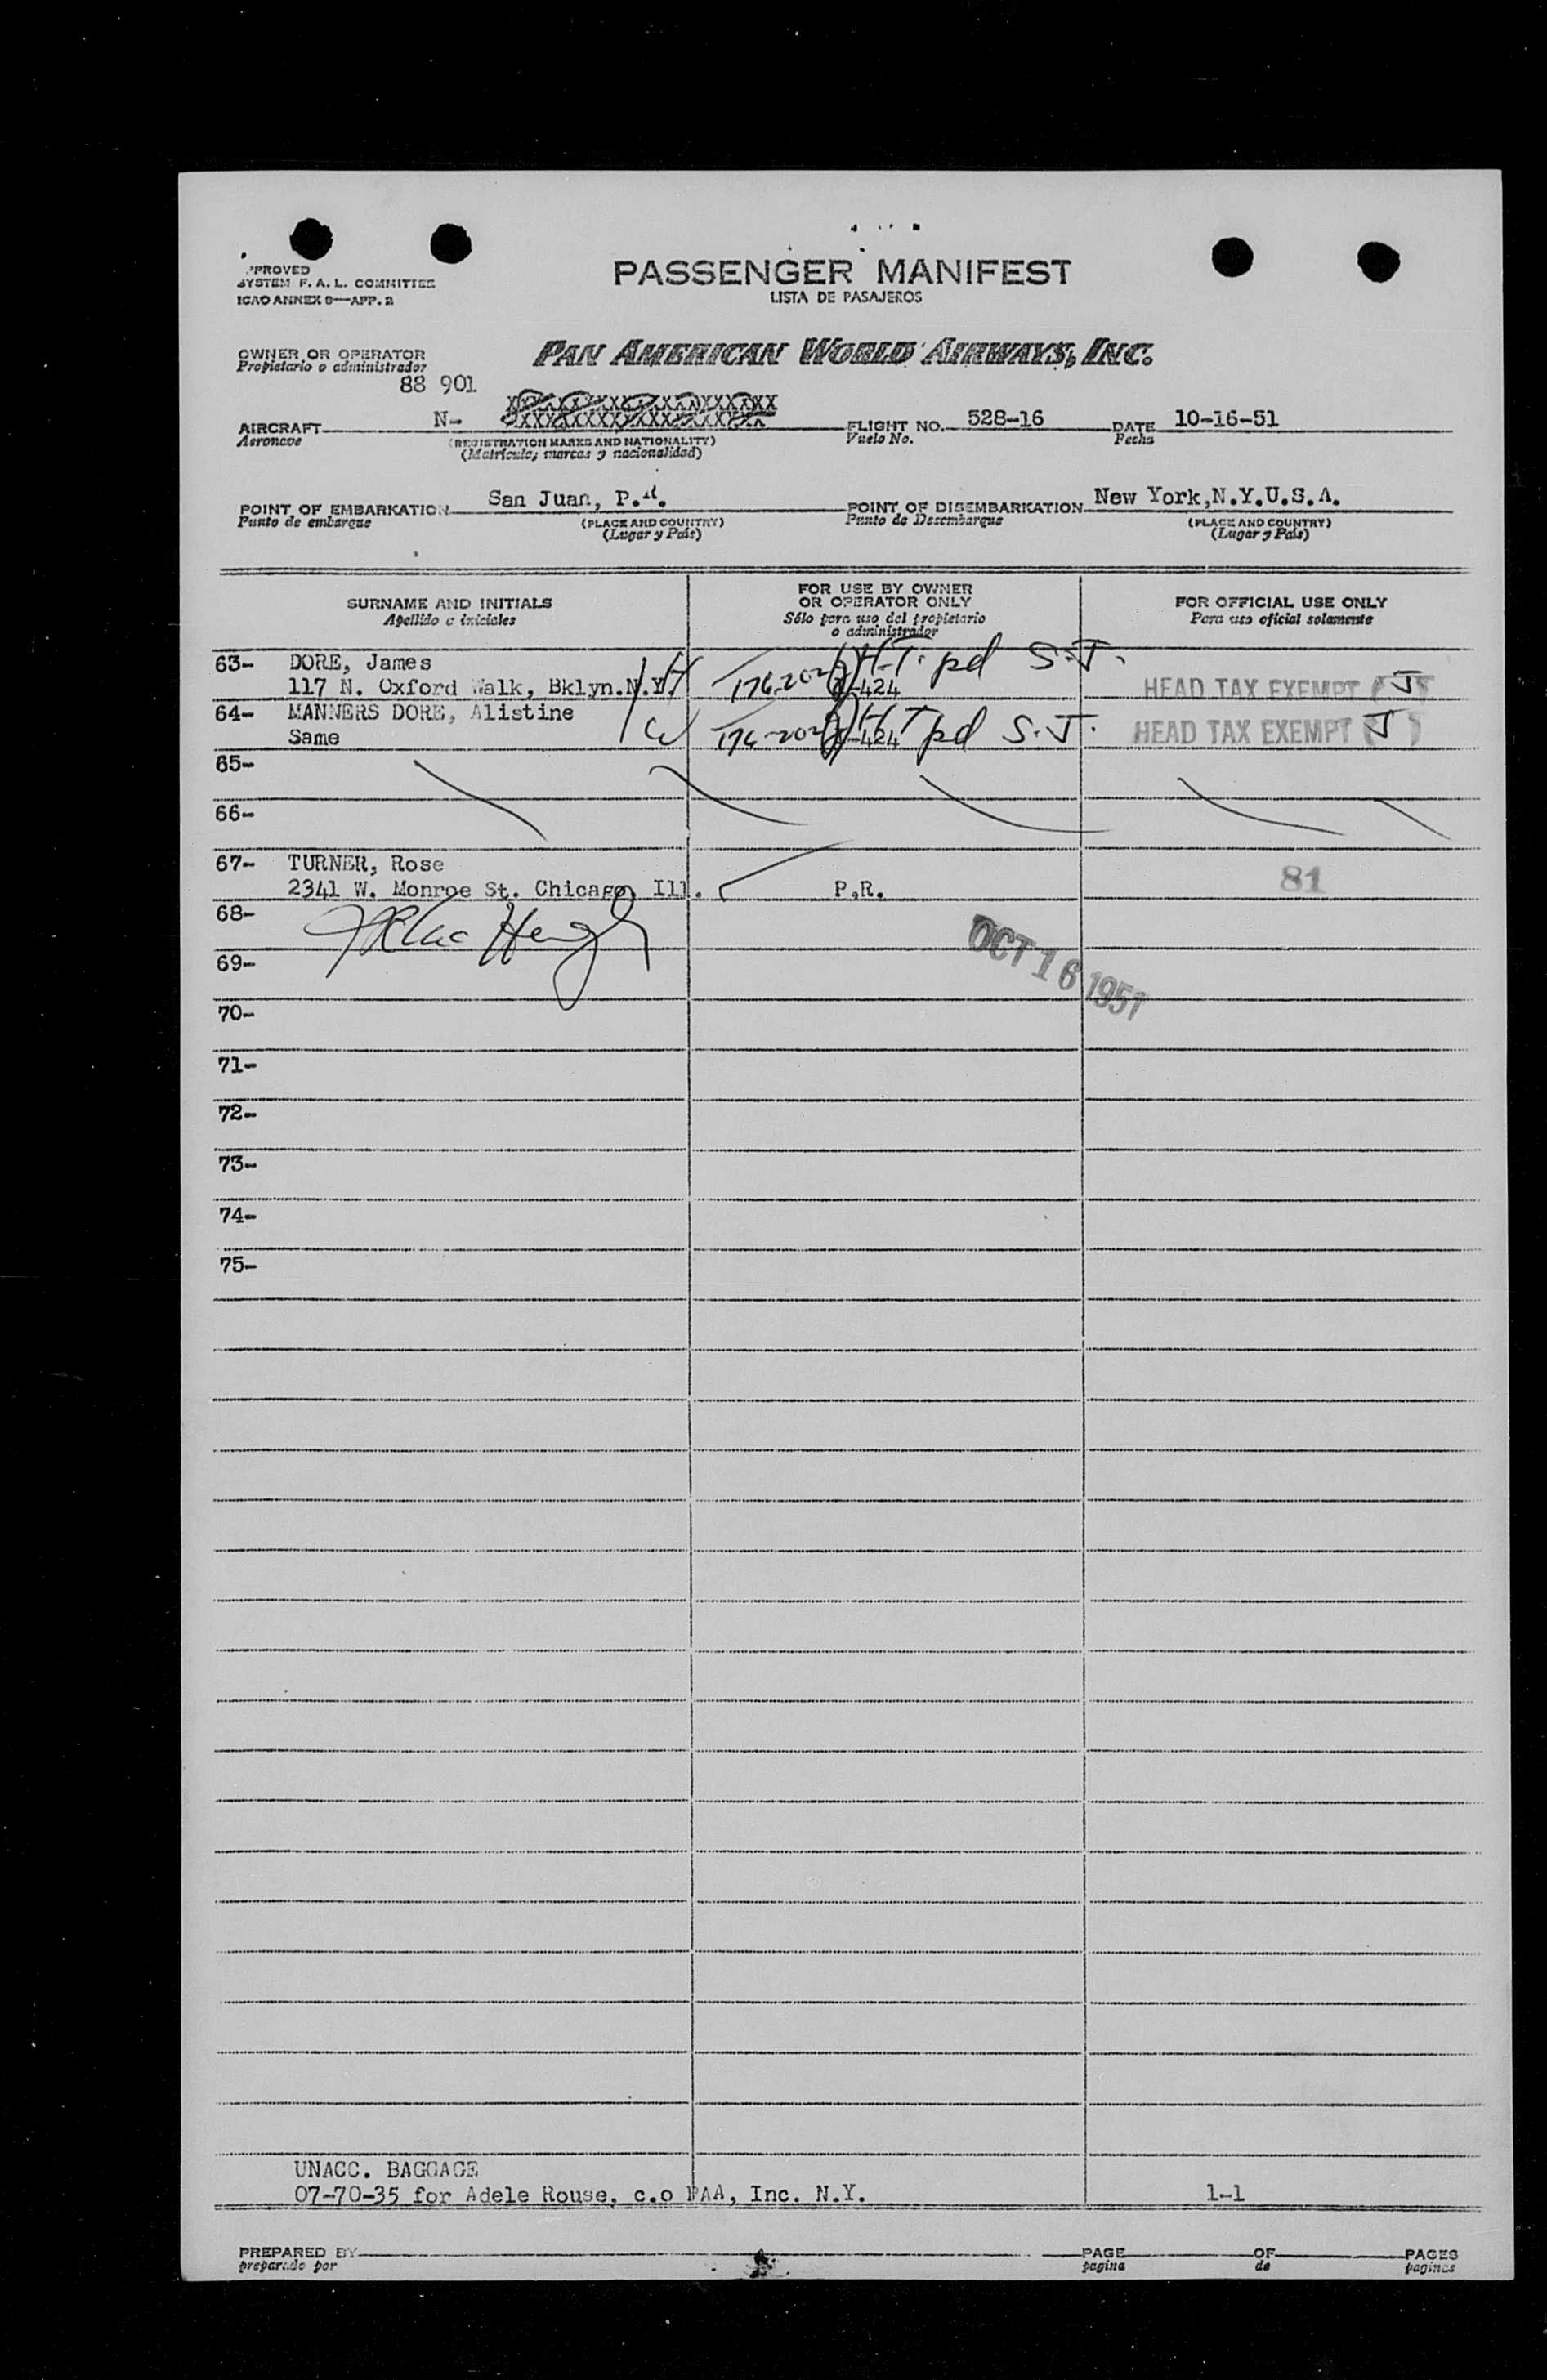 PASSENGER MANIFEST
LISTA DE PASAJEROS
SYSTEM F. A. L. COMMITTEE
ICAO ANNEX 9—APP. 2
PAN AMERICAN WORLD AIRWAYS, INC.
OWNER OR OPERATOR
Propietario o administrador
88 901
AIRCRAFT N- FLIGHT NO. 528-16 DATE 10-16-51
Aeronave (REGISTRATION MARKS AND NATIONALITY) Vuelo No. Fecha
(Matrícula, marcas y nacionalidad)
POINT OF EMBARKATION San Juan, P.R. POINT OF DISEMBARKATION New York,N.Y.U.S.A.
Punto de embarque (PLACE AND COUNTRY) Punto de Desembarque (PLACE AND COUNTRY)
(Lugar y País) (Lugar y País)
SURNAME AND INITIALS FOR USE BY OWNER OR OPERATOR ONLY FOR OFFICIAL USE ONLY
Apellido e iniciales Sólo para uso del propietario o administrador Para uso oficial solamente
63- DORE, James H.T. pd S.J.
117 N. Oxford Walk, Bklyn.N.Y. H -424 HEAD TAX EXEMPT J
64- MANNERS DORE, Alistine
Same W -424 HT pd S.J. HEAD TAX EXEMPT J
65-
66-
67- TURNER, Rose
2341 W. Monroe St. Chicago, Ill. P.R. 81
68-
69- OCT 16 1951
70-
71-
72-
73-
74-
75-
UNACC. BAGGAGE
07-70-35 for Adele Rouse, c.o PAA, Inc. N.Y. 1-1
PREPARED BY PAGE OF PAGES
preparado por pagina de paginas